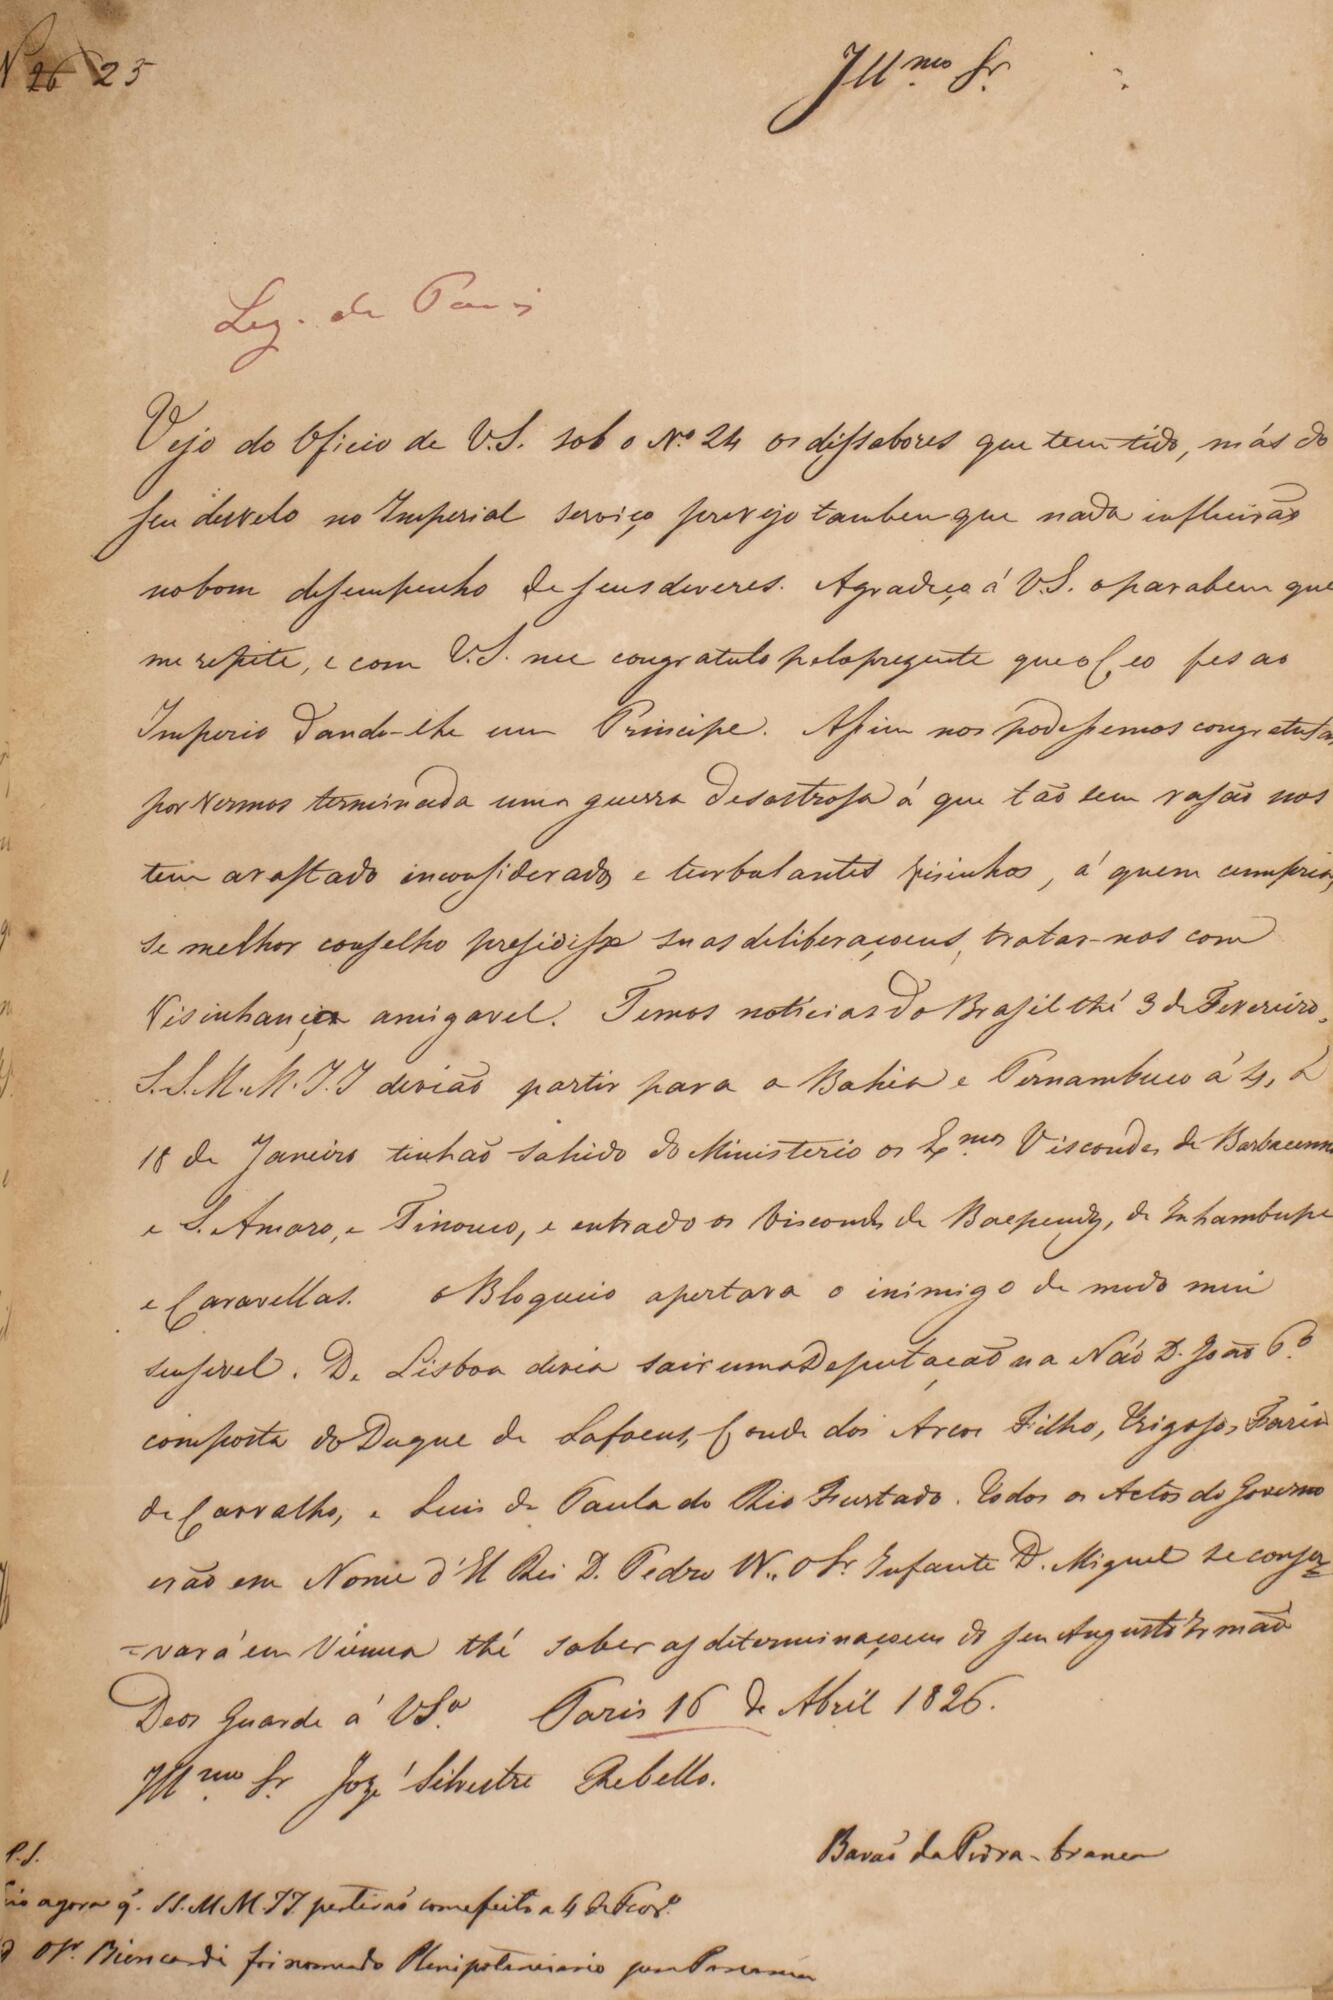 N 26 25
Ill.mo Sr.
Leg. de Paris
Vejo do Oficio de V.S. sob o N.o 24 os dissabores que tem tido, más do
seu desvelo no Imperial serviço prevejo tambem que nada influirão
no bom desempenho de seus deveres. Agradeço á V.S. o parabem que
me repite, e com V.S. me congratulo pelo prezente que o Ceo fes ao
Imperio dando-lhe um Principe. Assim nos podessemos congratular
por vermos terminada uma guerra desastrosa á que tão sem rasão nos
tem arastado inconsiderados e turbulantes visinhos, á quem cumpria,
se melhor conselho presidisse suas deliberaçoens, tratar-nos com
Visinhança amigavel. Temos notícias do Brasil thé 3 de Fevereiro.
S.S.M.M.I.I devião partir para a Bahia e Pernambuco á 4, á
18 de Janeiro tinhão sahido do Ministerio os Ex.mos Viscondes de Barbacena
e S. Amaro, e Tinouco, e entrado os Viscondes de Baependy, de Inhambupe
e Caravellas. o Bloqueio apertava o inimigo de modo mui
sensivel. De Lisboa devia sair uma Deputação na Náo D. João 6.o
composta do Duque de Lafoens, Conde dos Arcos Filho, Trigoso, Faria
de Carvalho, e Luis de Paula do Rio Furtado. Todos os Actos do Governo
irão em Nome d'El Rei D. Pedro IV., O Sr. Infante D. Miguel se conser=
=vará em Vienna thé saber as determinaçoens do seu Augusto Irmão
Deos Guarde á V.S.a Paris 16 de Abril 1826.
Ill.mo Sr. Jozé Silvestre Rebello.
Barão da Pedra-branca
P.S.
agora q. SS.MM.II. partirão com efeito a 4 de Fever.o
O Sr. Biencardi foi nomeado Plenipotenciario para Panamá